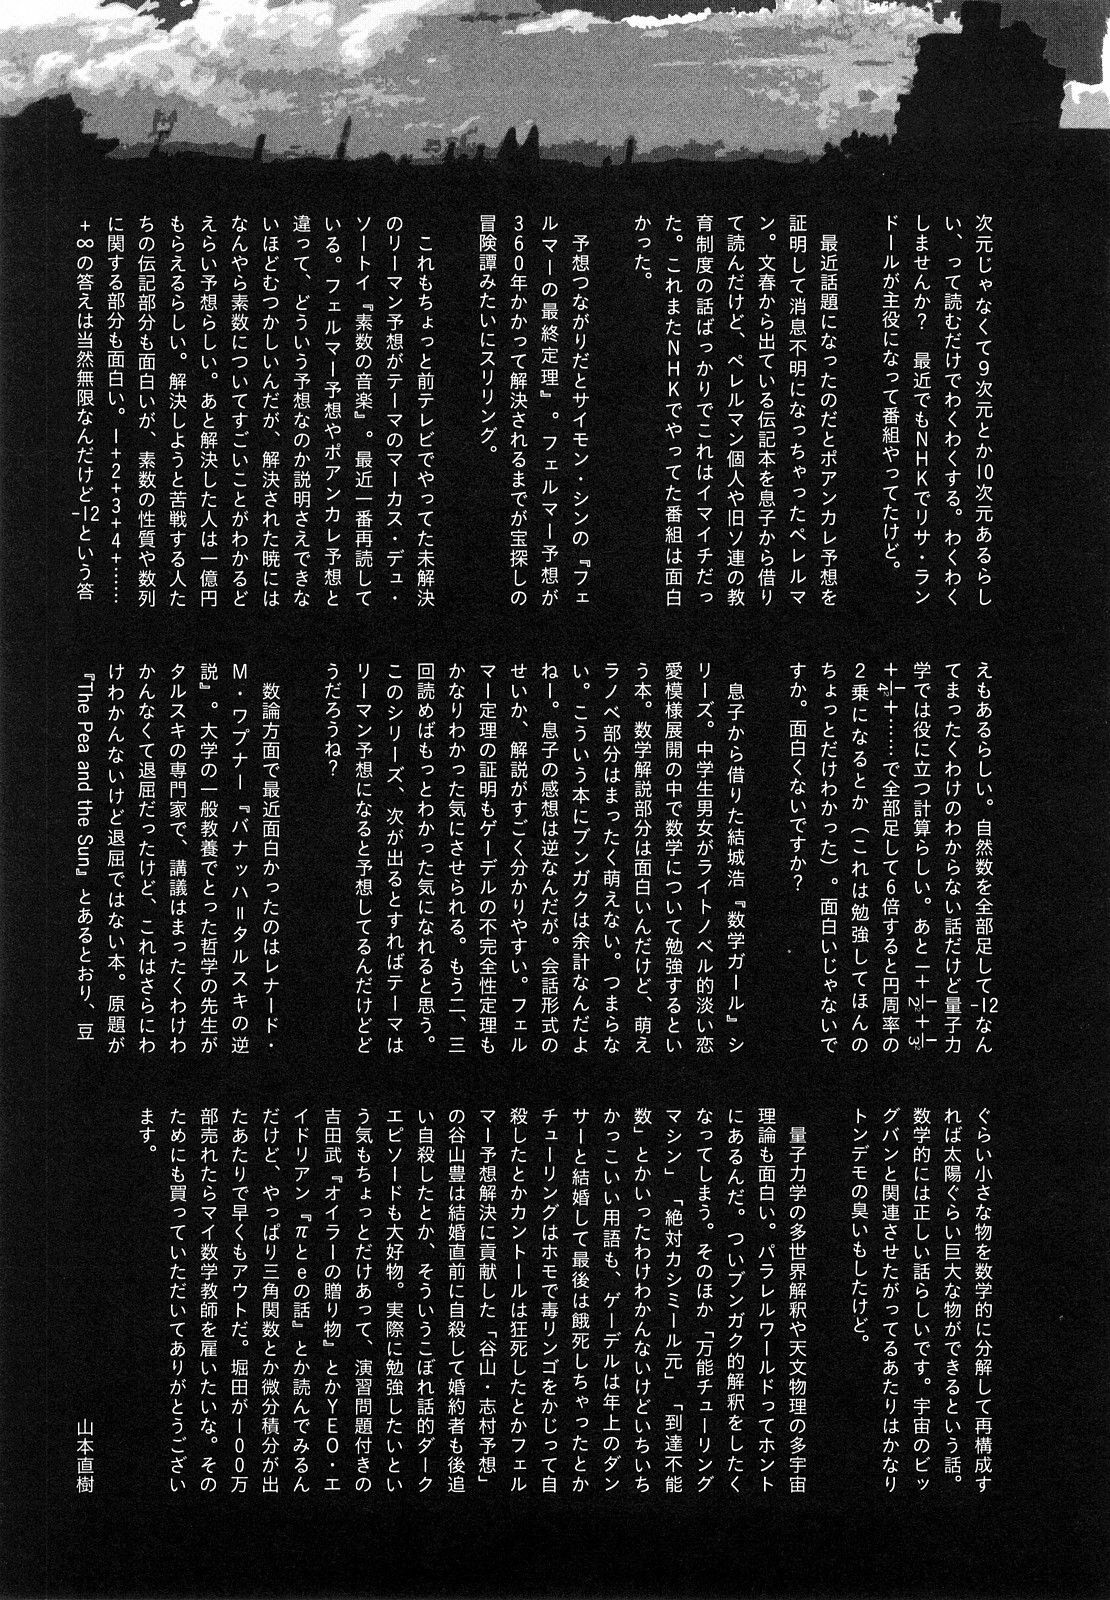 次元じゃなくて９次元とか10次元あるらし
い、って読むだけでわくわくする。わくわく
しませんか？　最近でもＮＨＫでリサ・ラン
ドールが主役になって番組やってたけど。
最近話題になったのだとポアンカレ予想を
証明して消息不明になっちゃったペレルマ
ン。文春から出ている伝記本を息子から借り
て読んだけど、ペレルマン個人や旧ソ連の教
育制度の話ばっかりでこれはイマイチだっ
た。これまたＮＨＫでやってた番組は面白
かった。
予想つながりだとサイモン・シンの『フェ
ルマーの最終定理』。フェルマー予想が
360年かかって解決されるまでが宝探しの
冒険譚みたいにスリリング。
これもちょっと前テレビでやってた未解決
のリーマン予想がテーマのマーカス・デュ・
ソートイ『素数の音楽』。最近一番再読して
いる。フェルマー予想やポアンカレ予想と
違って、どういう予想なのか説明さえできな
いほどむつかしいんだが、解決された暁には
なんやら素数についてすごいことがわかるど
えらい予想らしい。あと解決した人は一億円
もらえるらしい。解決しようと苦戦する人た
ちの伝記部分も面白いが、素数の性質や数列
に関する部分も面白い。1＋2＋3＋4＋……
＋∞の答えは当然無限なんだけど-12という答
えもあるらしい。自然数を全部足して-12なん
てまったくわけのわからない話だけど量子力
学では役に立つ計算らしい。あと1＋1/2²＋1/3²
＋1/4²＋……で全部足して6倍すると円周率の
２乗になるとか（これは勉強してほんの
ちょっとだけわかった）。面白いじゃないで
すか。面白くないですか？
息子から借りた結城浩『数学ガール』シ
リーズ。中学生男女がライトノベル的淡い恋
愛模様展開の中で数学について勉強するとい
う本。数学解説部分は面白いんだけど、萌え
ラノベ部分はまったく萌えない。つまらな
い。こういう本にブンガクは余計なんだよ
ねー。息子の感想は逆なんだが。会話形式の
せいか、解説がすごく分かりやすい。フェル
マー定理の証明もゲーデルの不完全性定理も
かなりわかった気にさせられる。もう二、三
回読めばもっとわかった気になれると思う。
このシリーズ、次が出るとすればテーマは
リーマン予想になると予想してるんだけどど
うだろうね？
数論方面で最近面白かったのはレナード・
Ｍ・ワプナー『バナッハ＝タルスキの逆
説』。大学の一般教養でとった哲学の先生が
タルスキの専門家で、講議はまったくわけわ
かんなくて退屈だったけど、これはさらにわ
けわかんないけど退屈ではない本。原題が
『The Pea and the Sun』とあるとおり、豆
ぐらい小さな物を数学的に分解して再構成す
れば太陽ぐらい巨大な物ができるという話。
数学的には正しい話らしいです。宇宙のビッ
グバンと関連させたがってるあたりはかなり
トンデモの臭いもしたけど。
量子力学の多世界解釈や天文物理の多宇宙
理論も面白い。パラレルワールドってホント
にあるんだ。ついブンガク的解釈をしたく
なってしまう。そのほか「万能チューリング
マシン」「絶対カシミール元」「到達不能
数」とかいったわけわかんないけどいちいち
かっこいい用語も、ゲーデルは年上のダン
サーと結婚して最後は餓死しちゃったとか
チューリングはホモで毒リンゴをかじって自
殺したとかカントールは狂死したとかフェル
マー予想解決に貢献した「谷山・志村予想」
の谷山豊は結婚直前に自殺して婚約者も後追
い自殺したとか、そういうこぼれ話的ダーク
エピソードも大好物。実際に勉強したいとい
う気もちょっとだけあって、演習問題付きの
吉田武『オイラーの贈り物』とかＹＥＯ・エ
イドリアン『πとｅの話』とか読んでみるん
だけど、やっぱり三角関数とか微分積分が出
たあたりで早くもアウトだ。堀田が100万
部売れたらマイ数学教師を雇いたいな。その
ためにも買っていただいてありがとうござい
ます。
山本直樹